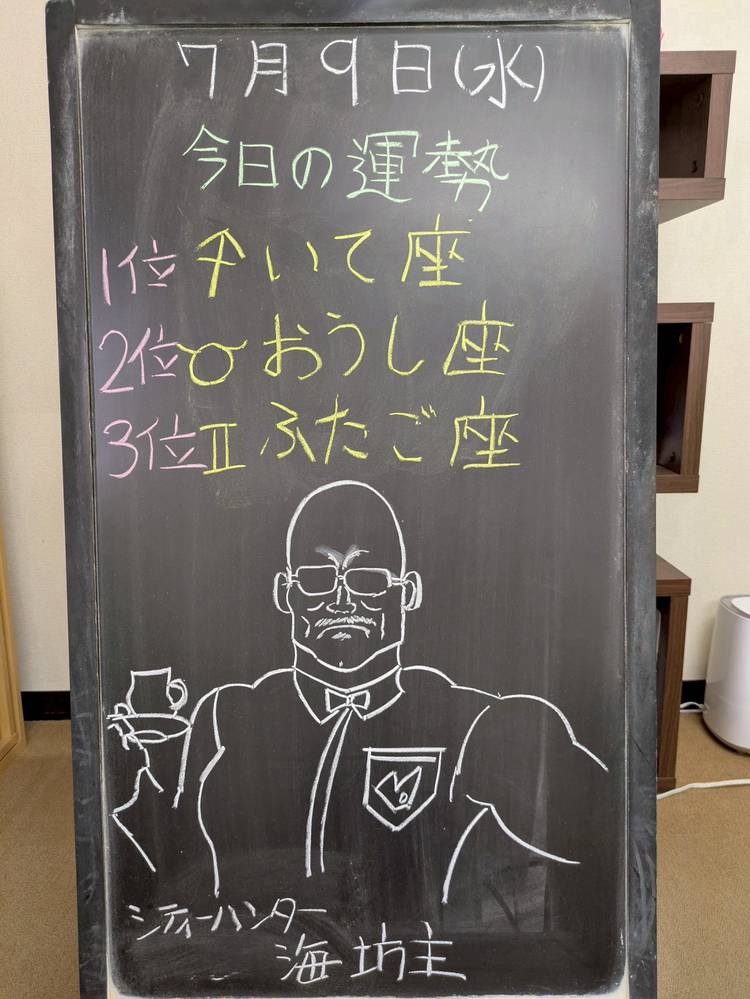 7月9日(水)
今日の運勢
1位♐いて座
2位♉おうし座
3位♊ふたご座
シティーハンター
海坊主